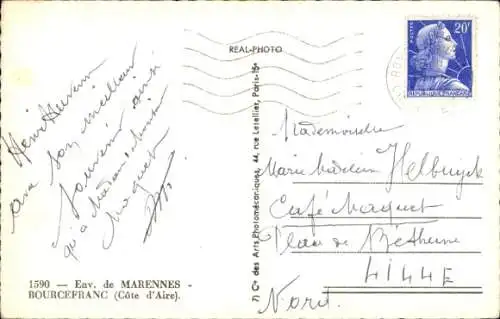 REAL-PHOTO
POSTES
20F
REPUBLIQUE FRANÇAISE
Henri
avec son meilleur
Souvenir ainsi
qu'à Madame
Maquet
Mademoiselle
Marie Madeleine Helbuyck
Café Maquet
Place de Béthune
LILLE
Nord.
7) Cie des Arts Photomécaniques, 44, rue Letellier, Paris-15e
1590 — Env. de MARENNES -
BOURCEFRANC (Côte d'Aire).